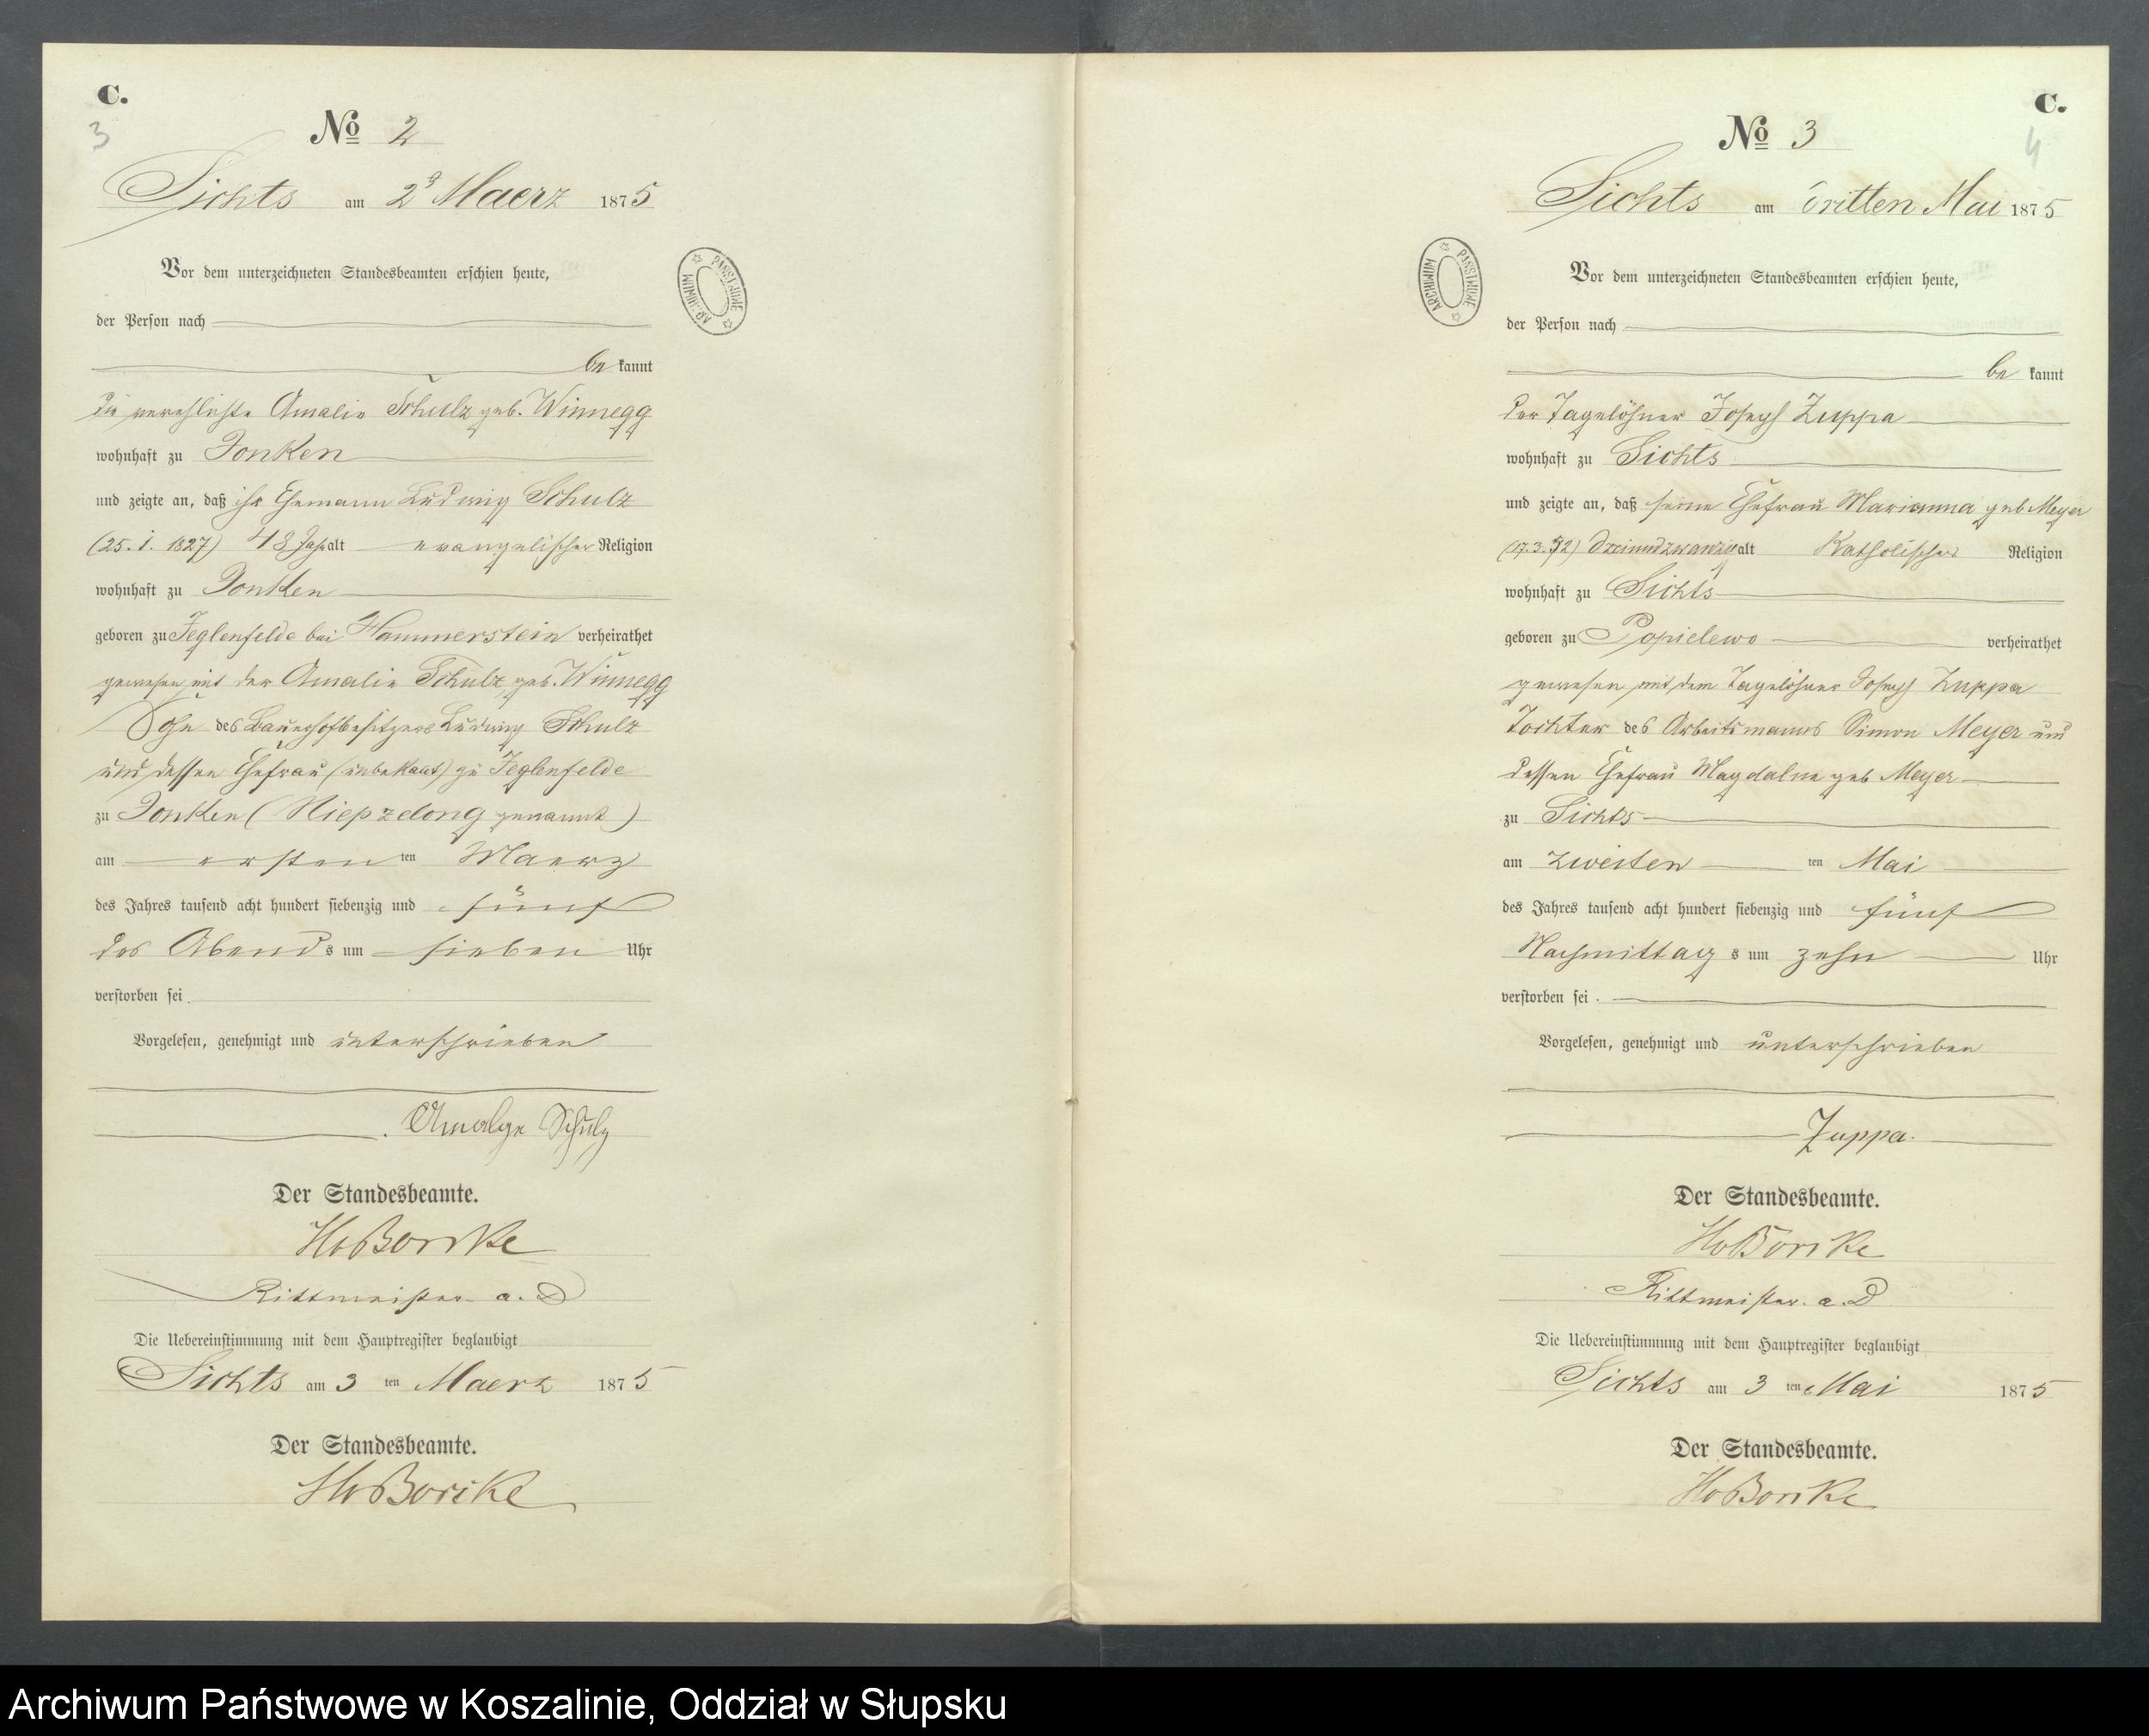 C.
3
No 2
Sichts am 2 Maerz 1875
Vor dem unterzeichneten Standesbeamten erschien heute,
der Person nach
be kannt
die verehlichte Amalie Schulz geb. Winnegg
wohnhaft zu Jonken
und zeigte an, daß ihr Ehemann Ludwig Schulz
(25. 1. 1827) 48 Jahr alt evangelischer Religion
wohnhaft zu Jonken
geboren zu Jeglenfelde bei Hammerstein verheirathet
gewesen mit der Amalie Schulz, geb. Winnegg
Sohn des Bauerhofbesitzers Ludwig Schulz
und dessen Ehefrau (unbekant) zu Jeglenfelde
zu Jonken (Niepzelong genannt)
am ersten ten Maerz
des Jahres tausend acht hundert siebenzig und fünf
des Abend s um sieben Uhr
verstorben sei.
Vorgelesen, genehmigt und unterschrieben
Amalye Schulz
Der Standesbeamte.
HvBorcke
Rittmeister a. D
Die Uebereinstimmung mit dem Hauptregister beglaubigt
Sichts am 3 ten Maerz 1875
Der Standesbeamte.
HvBorcke
ARCHIWUM PAŃSTWOWE
C.
4
No 3
Sichts am dritten Mai 1875
Vor dem unterzeichneten Standesbeamten erschien heute,
der Person nach
be kannt
der Tagelöhner Joseph Zuppa
wohnhaft zu Sichts
und zeigte an, daß seine Ehefrau Marianna geb Meyer
(17. 3. 52) dreiundzwanzig alt Katholischer Religion
wohnhaft zu Sichts
geboren zu Popielewo verheirathet
gewesen mit dem Tagelöhner Joseph Zuppa
Tochter des Arbeitsmanns Simon Meyer und
dessen Ehefrau Magdalne geb Meyer
zu Sichts
am zweiten ten Mai
des Jahres tausend acht hundert siebenzig und fünf
Nachmittag s um zehn Uhr
verstorben sei.
Vorgelesen, genehmigt und unterschrieben
Zuppa.
Der Standesbeamte.
HvBorcke
Rittmeister. a. D
Die Uebereinstimmung mit dem Hauptregister beglaubigt
Sichts am 3 ten Mai 1875
Der Standesbeamte.
HvBorcke
ARCHIWUM PAŃSTWOWE
Archiwum Państwowe w Koszalinie, Oddział w Słupsku